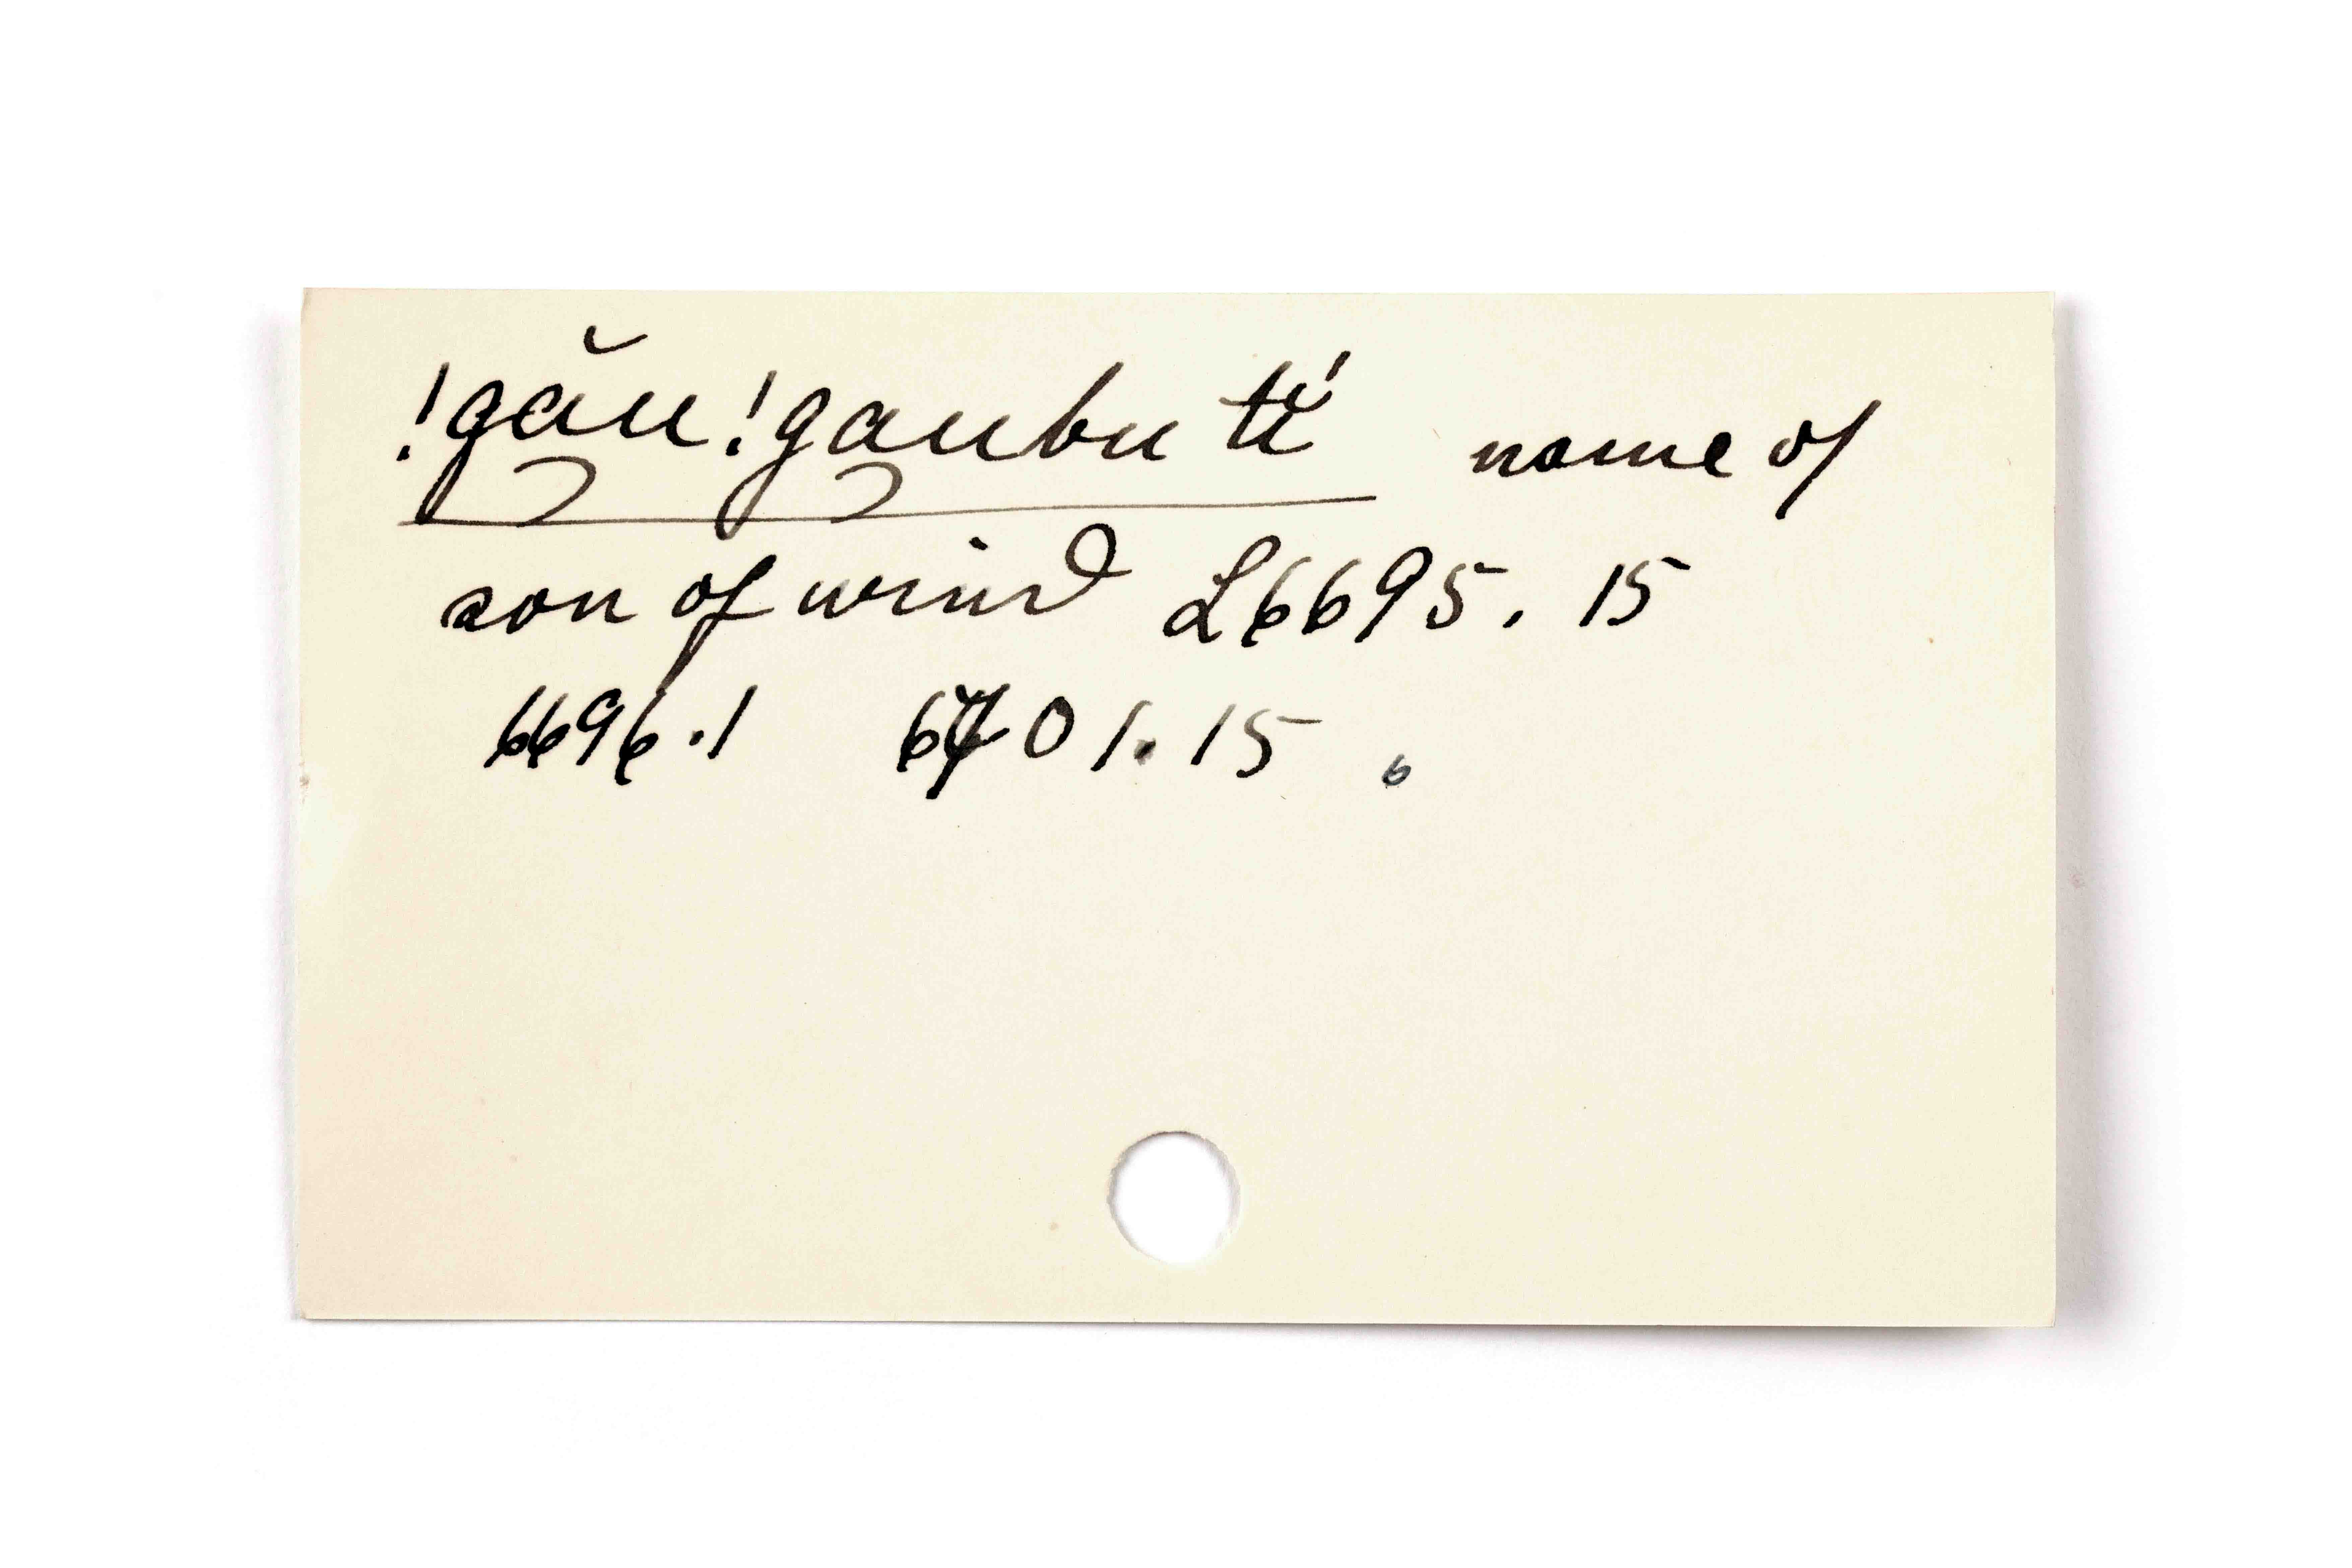 !gău!gaubu tĭ' name of
son of wind L6695. 15
6696.1 6701.15 .